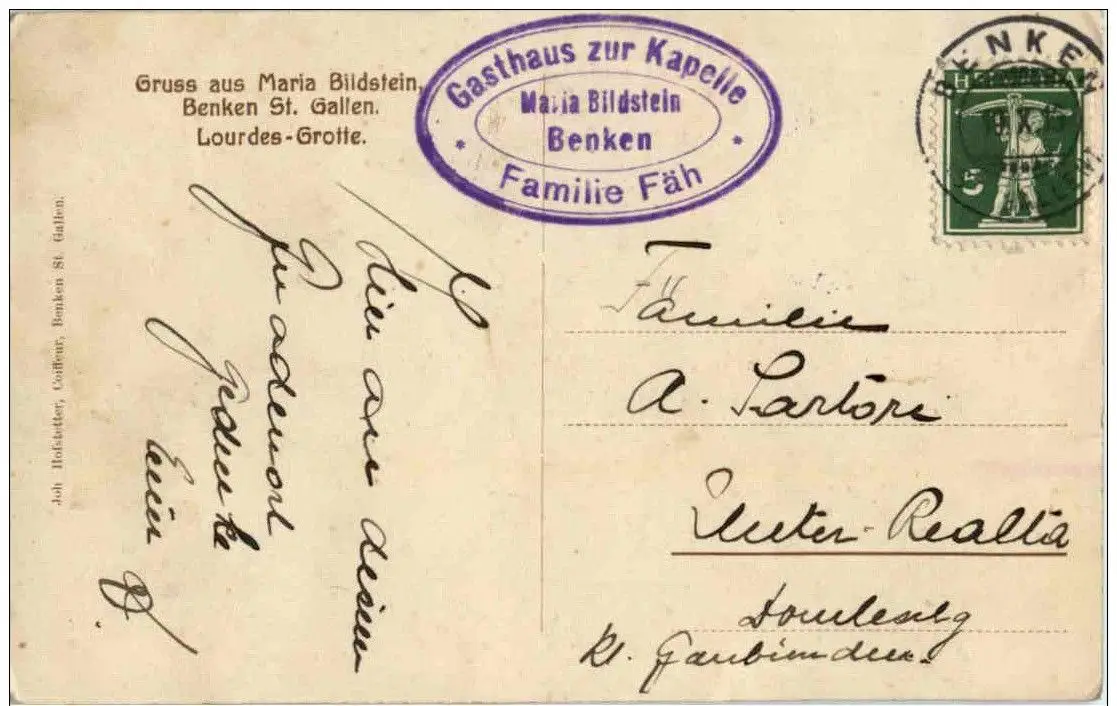 Gruss aus Maria Bildstein,
Benken St. Gallen.
Lourdes-Grotte.
Gasthaus zur Kapelle
Maria Bildstein
Benken
* Familie Fäh *
BENKEN
HELVETIA
5
Joh Hofstetter, Coiffeur, Benken St. Gallen.
Hier an diesem
Gnadenort
gedenke
Euer
Familie
A. Sartori
Unter-Realta
Domleschg
Kt. Graubünden.